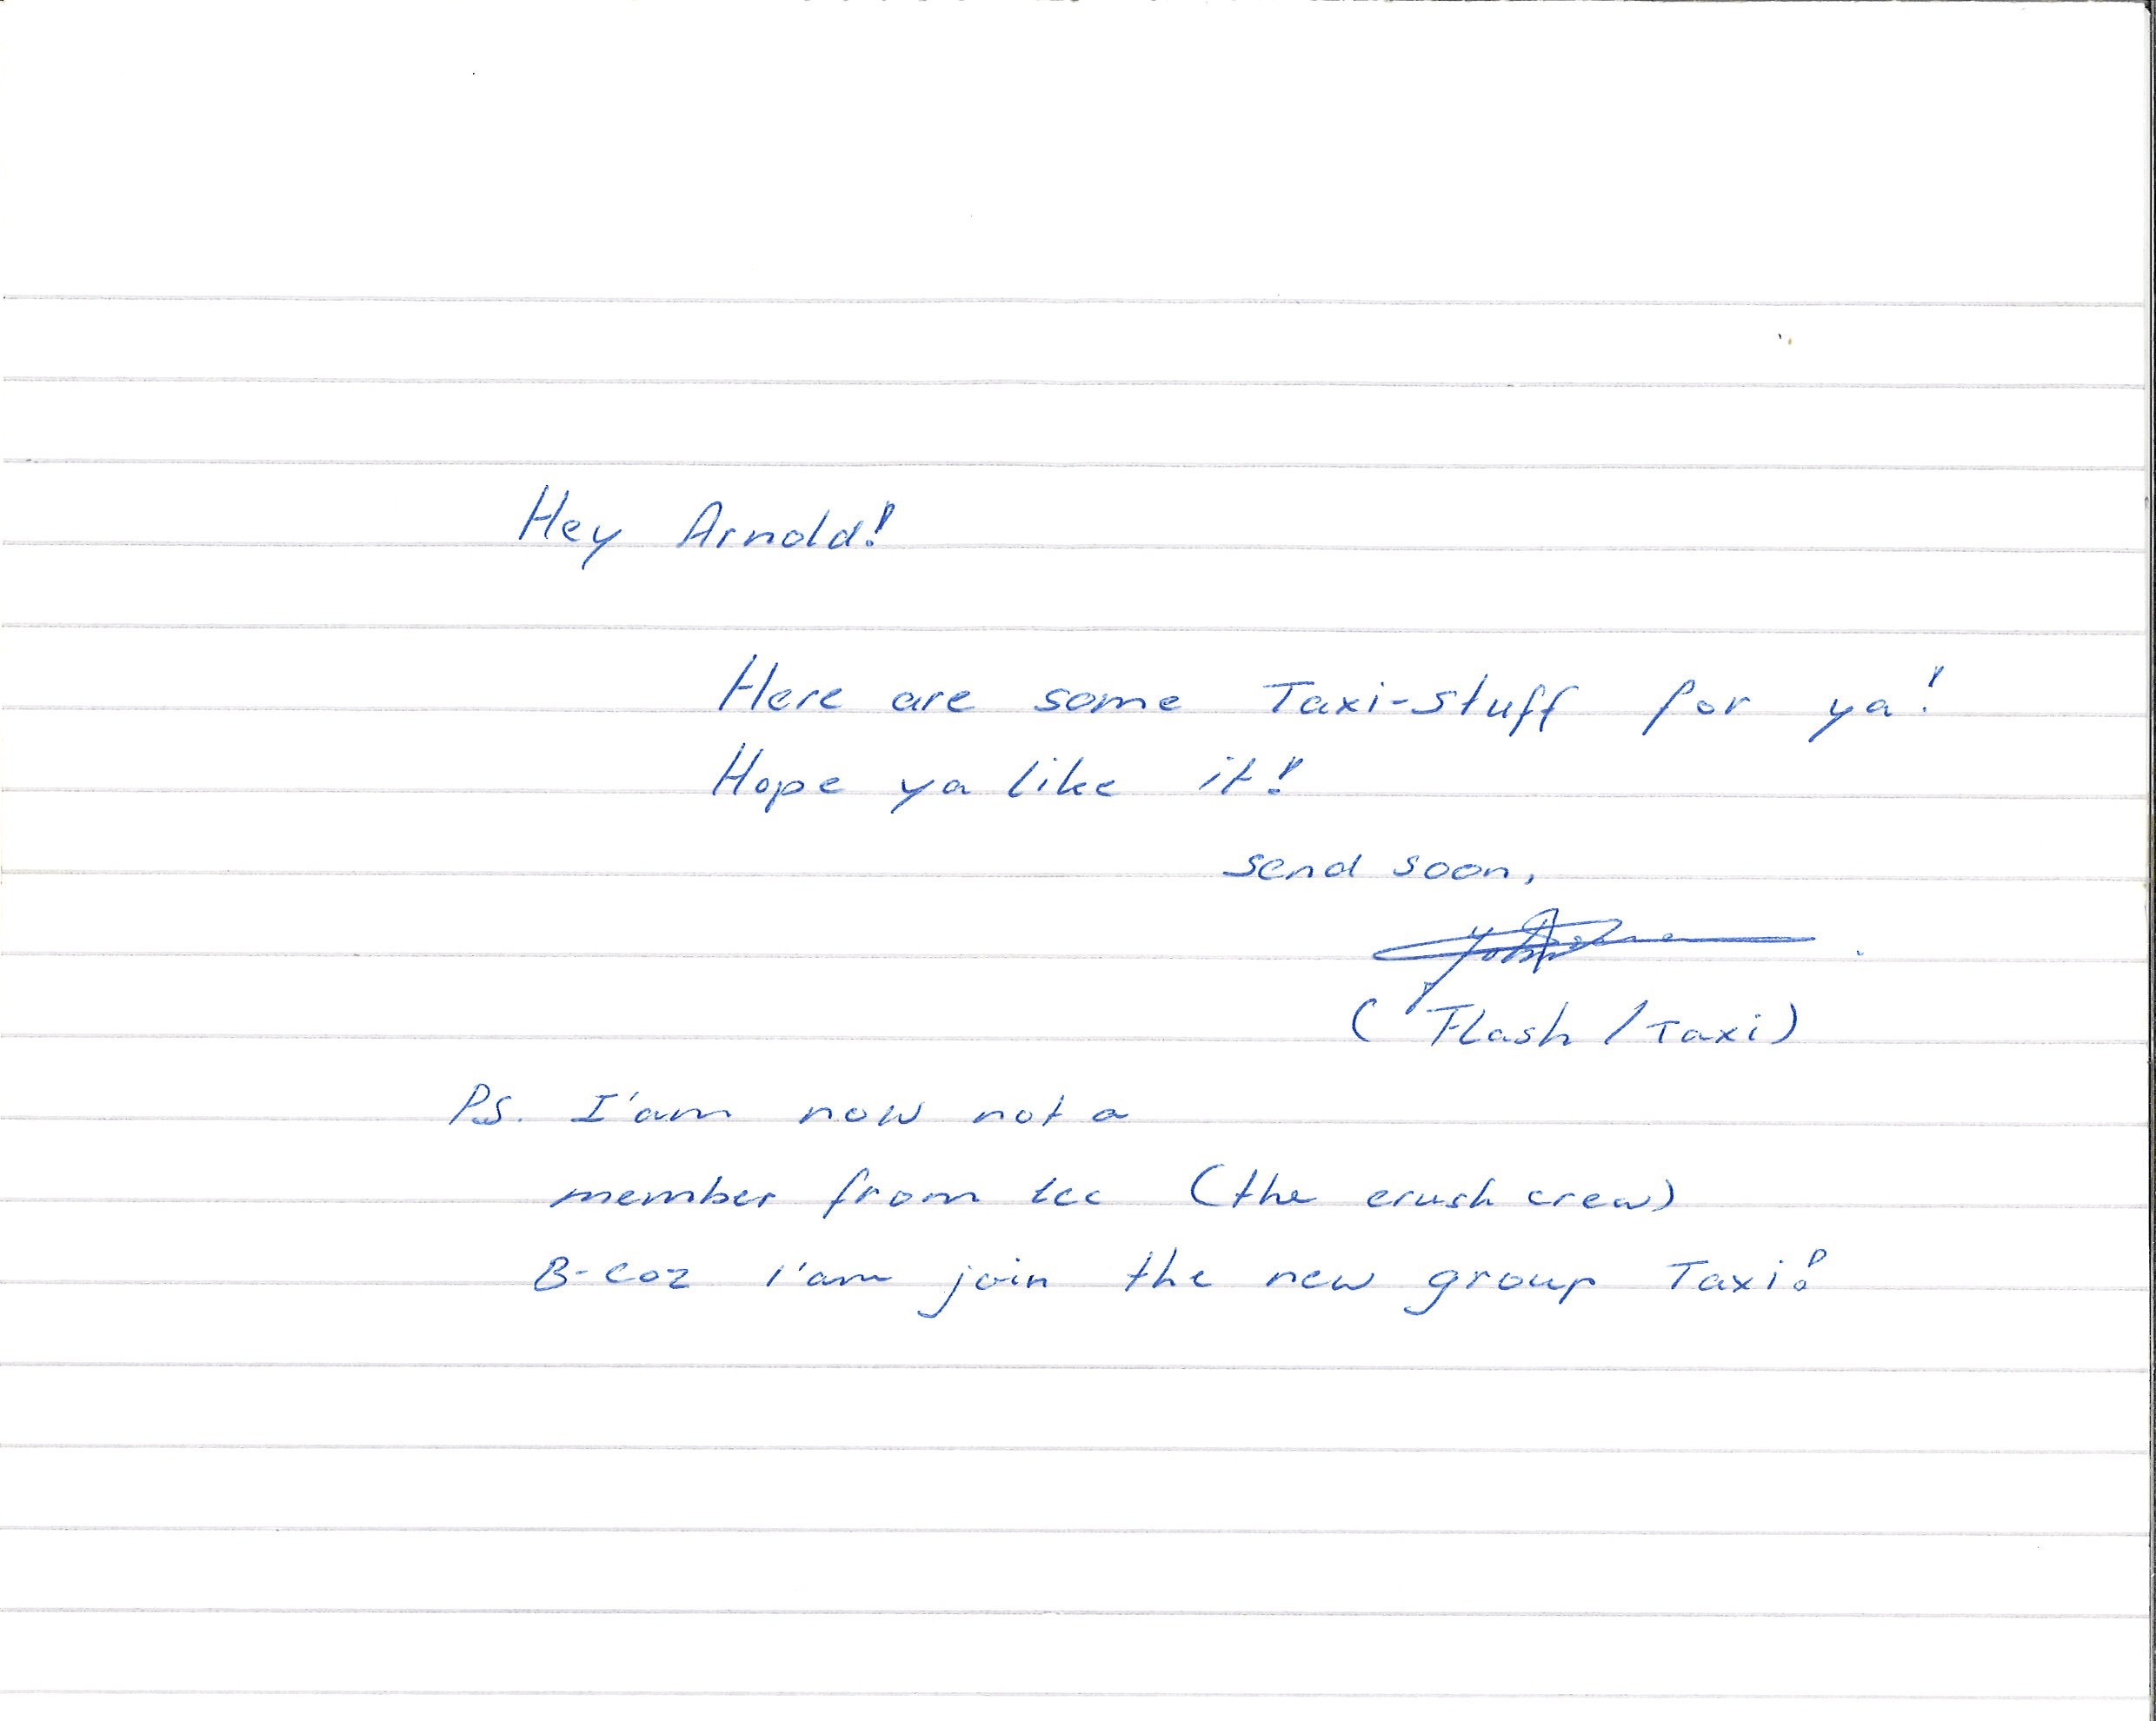 Hey Arnold!
Here are some Taxi-stuff for ya!
Hope ya like it!
send soon,
(Flash / Taxi)
PS. I'am now not a
member from tcc (the crush crew)
B-coz I'am join the new group Taxi!